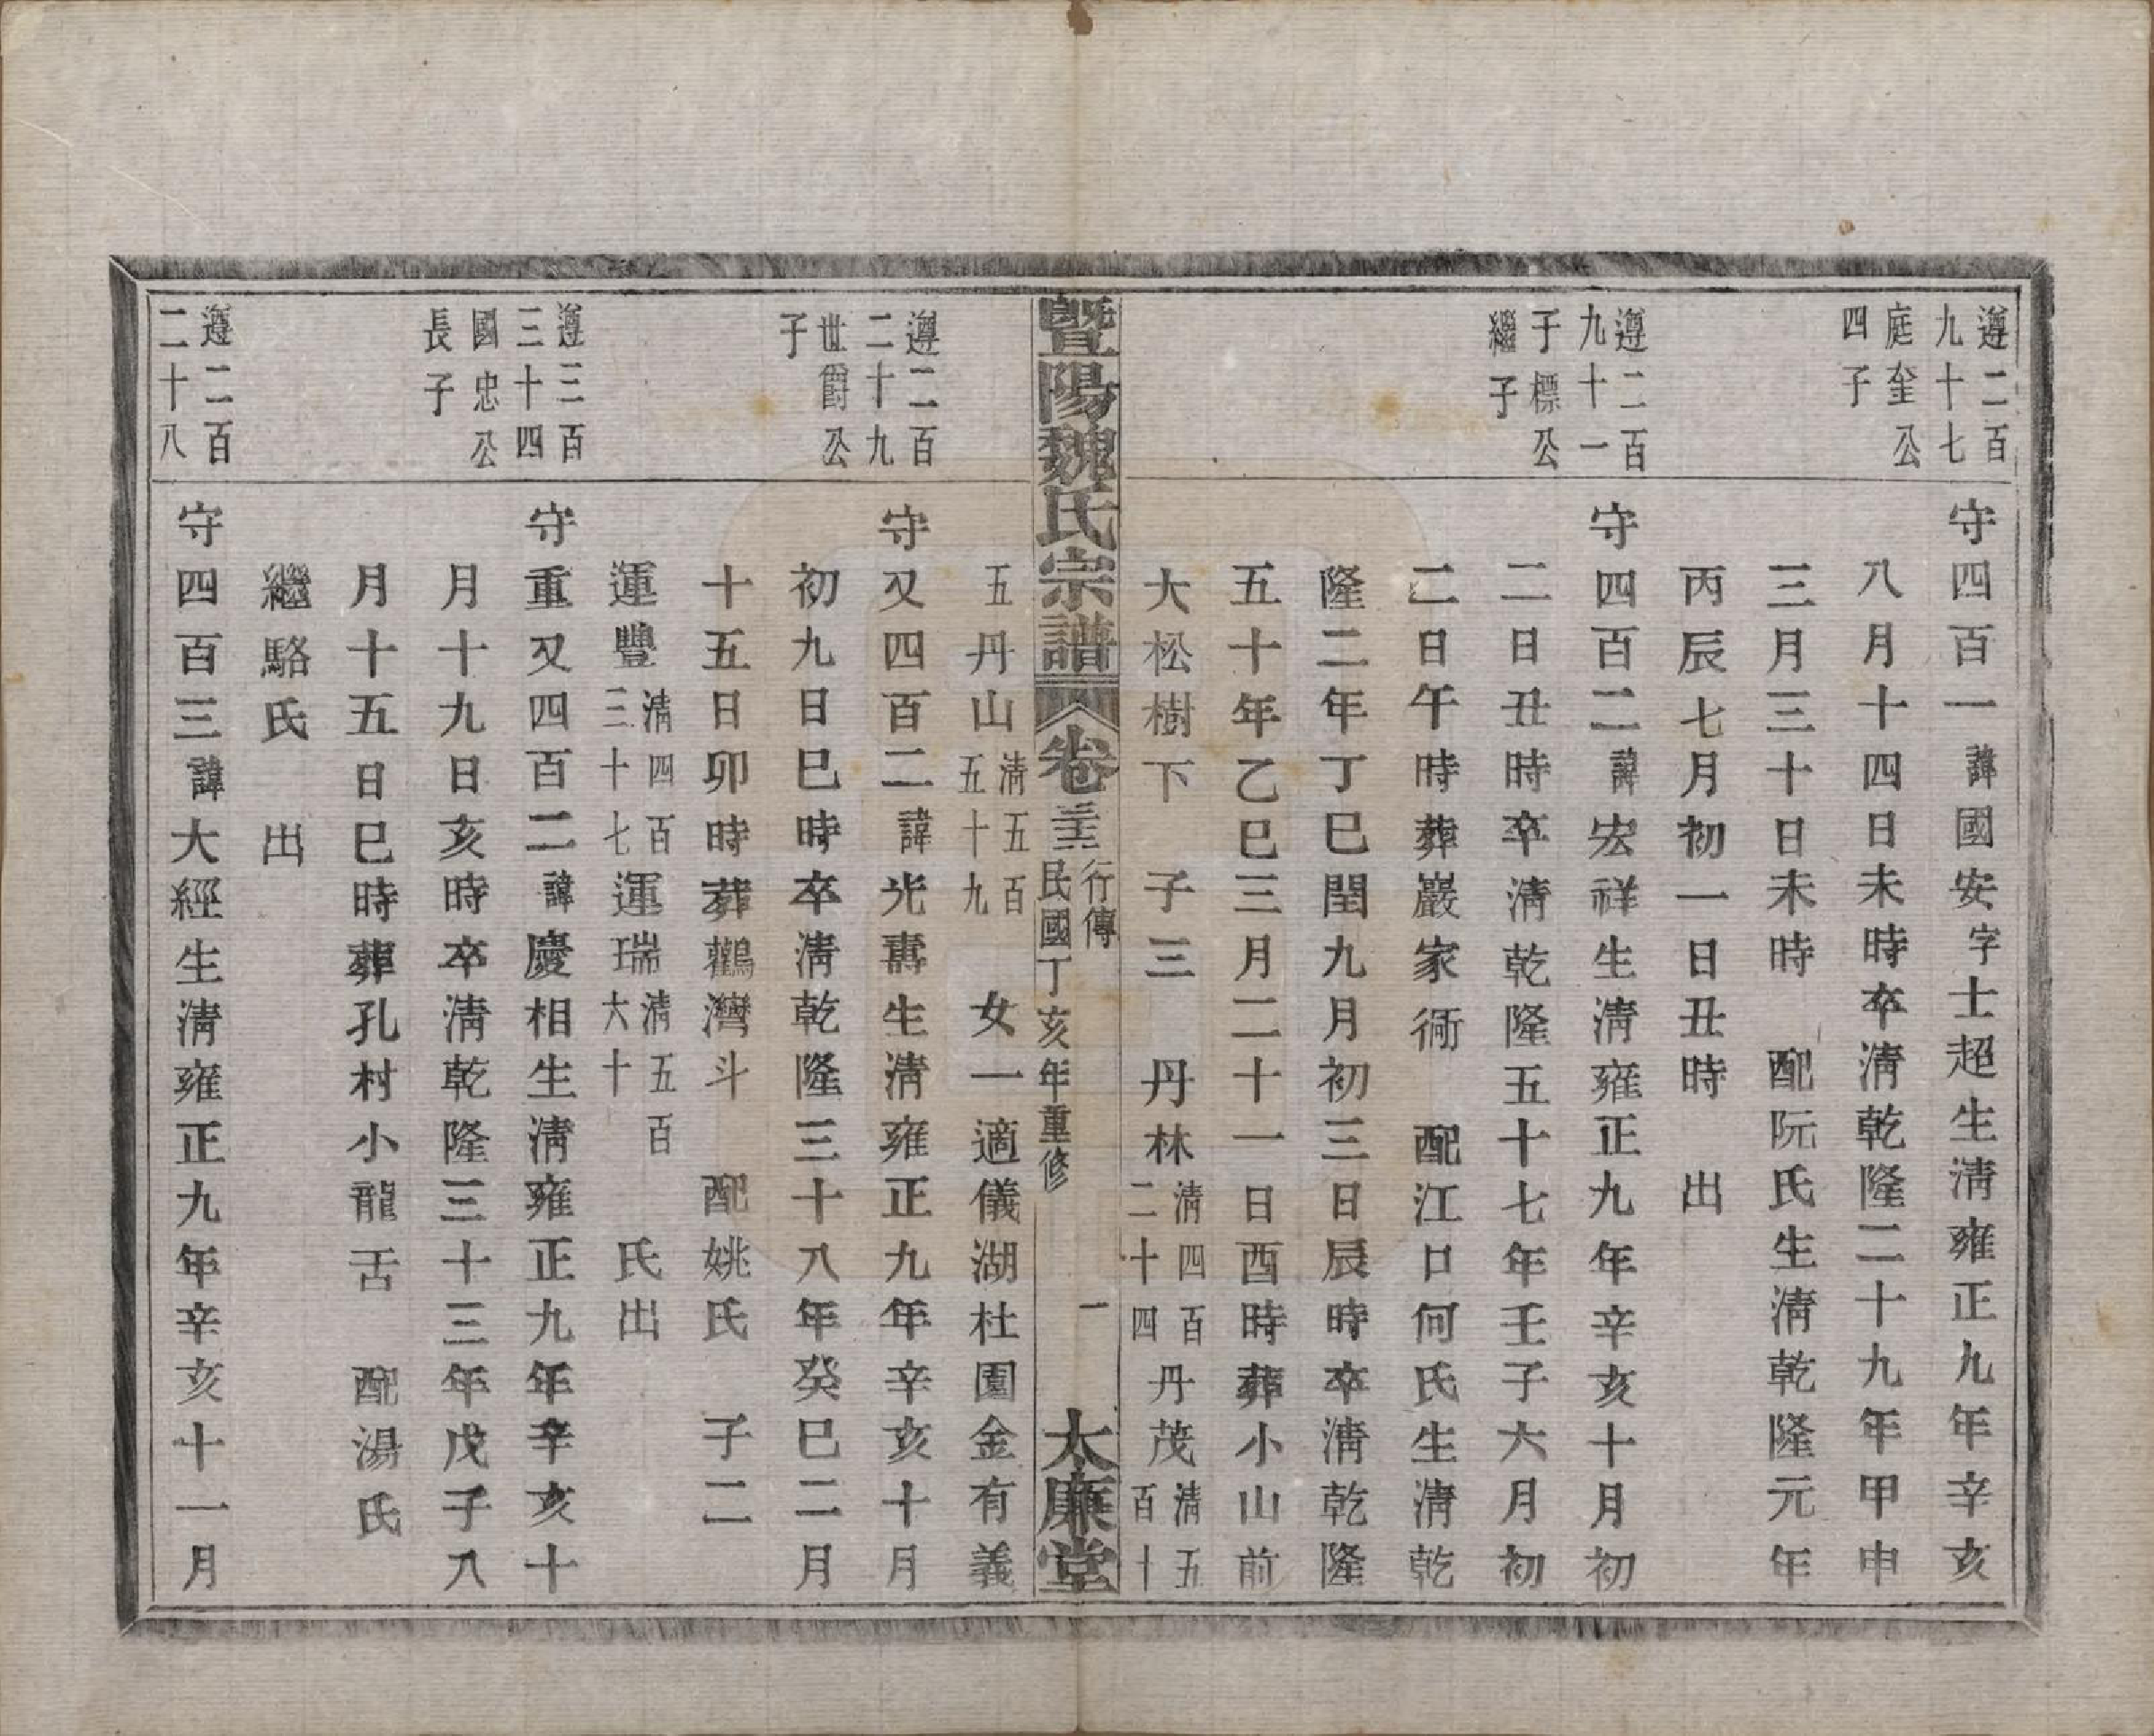 遵二百
九十七
庭奎公
四子
守四百一諱國安字士超生淸雍正九年辛亥
八月十四日未時卒淸乾隆二十九年甲申
三月三十日未時　配阮氏生淸乾隆元年
丙辰七月初一日丑時　出
遵二百
九十一
于標公
繼子
守四百二諱宏祥生淸雍正九年辛亥十月初
二日丑時卒淸乾隆五十七年壬子六月初
二日午時葬巖家衕　配江口何氏生淸乾
隆二年丁巳閏九月初三日辰時卒淸乾隆
五十年乙巳三月二十一日酉時葬小山前
大松樹下　子三　丹林淸四百二十四丹茂淸五百十
暨陽魏氏宗譜
卷三十三
行傳
民國丁亥年重修
一
太廉堂
五丹山淸五百五十九　女一適儀湖杜園金有義
遵二百
二十九
世爵公
子
守又四百二諱光壽生淸雍正九年辛亥十月
初九日巳時卒淸乾隆三十八年癸巳二月
十五日卯時葬鸛灣斗　配姚氏　子二
運豐淸四百三十七運瑞淸五百六十　氏出
遵三百
三十四
國忠公
長子
守重又四百二諱慶相生淸雍正九年辛亥十
月十九日亥時卒淸乾隆三十三年戊子八
月十五日巳時葬孔村小龍舌　配湯氏
繼駱氏　出
遵二百
二十八
守四百三諱大經生淸雍正九年辛亥十一月